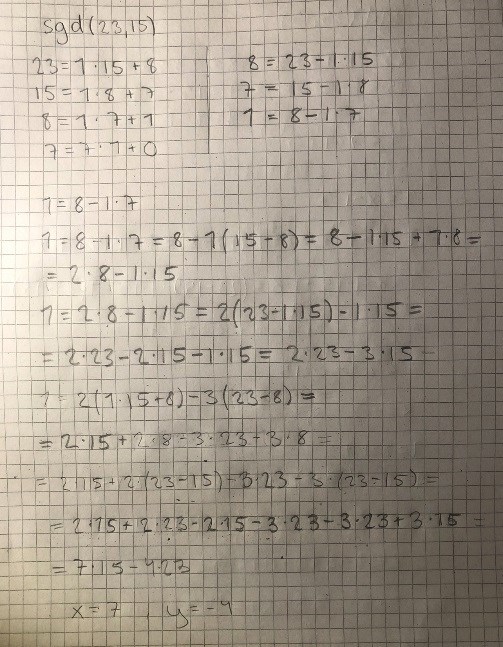 sgd(23,15)
23=1·15+8
15=1·8+7
8=1·7+1
7=7·1+0
8=23-1·15
7=15-1·8
1=8-1·7
1=8-1·7
1=8-1·7=8-1(15-8)=8-1·15+1·8=
=2·8-1·15
1=2·8-1·15=2(23-1·15)-1·15=
=2·23-2·15-1·15=2·23-3·15
1=2(1·15+8)-3(23-8)=
=2·15+2·8-3·23-3·8=
=2·15+2·(23-15)-3·23-3·(23-15)=
=2·15+2·23-2·15-3·23-3·23+3·15=
=7·15-4·23
x=7, y=-4